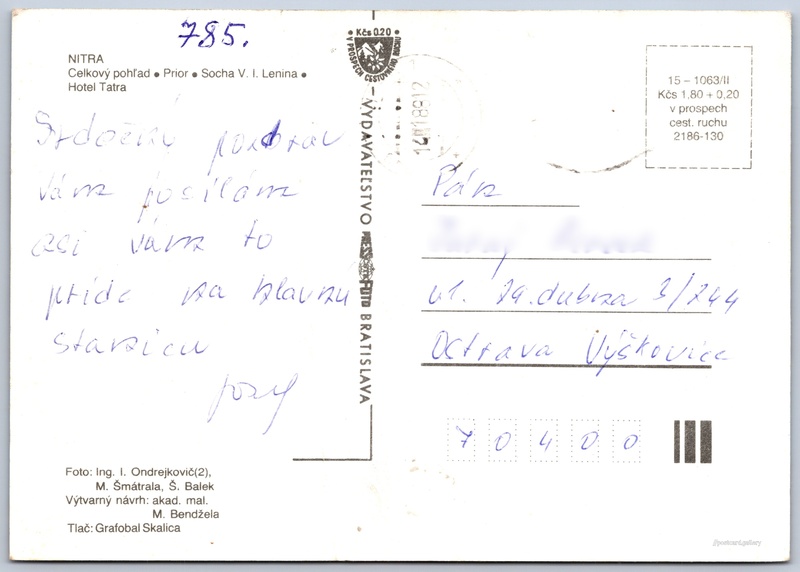 785.
NITRA
Celkový pohľad • Prior • Socha V. I. Lenina •
Hotel Tatra
Srdečný pozdrav
vám posílám
asi vám to
príde na hlavnu
stanicu
Jozef
Foto: Ing. I. Ondrejkovič(2),
M. Šmátrala, Š. Balek
Výtvarný návrh: akad. mal.
M. Bendžela
Tlač: Grafobal Skalica
Kčs 0.20
V PROSPECH CESTOVNÉHO RUCHU
VYDAVATEĽSTVO PRESSFOTO BRATISLAVA
15 – 1063/II
Kčs 1,80 + 0,20
v prospech
cest. ruchu
2186-130
Pán
ul. 29. dubna 3/244
Ostrava Výškovice
70400